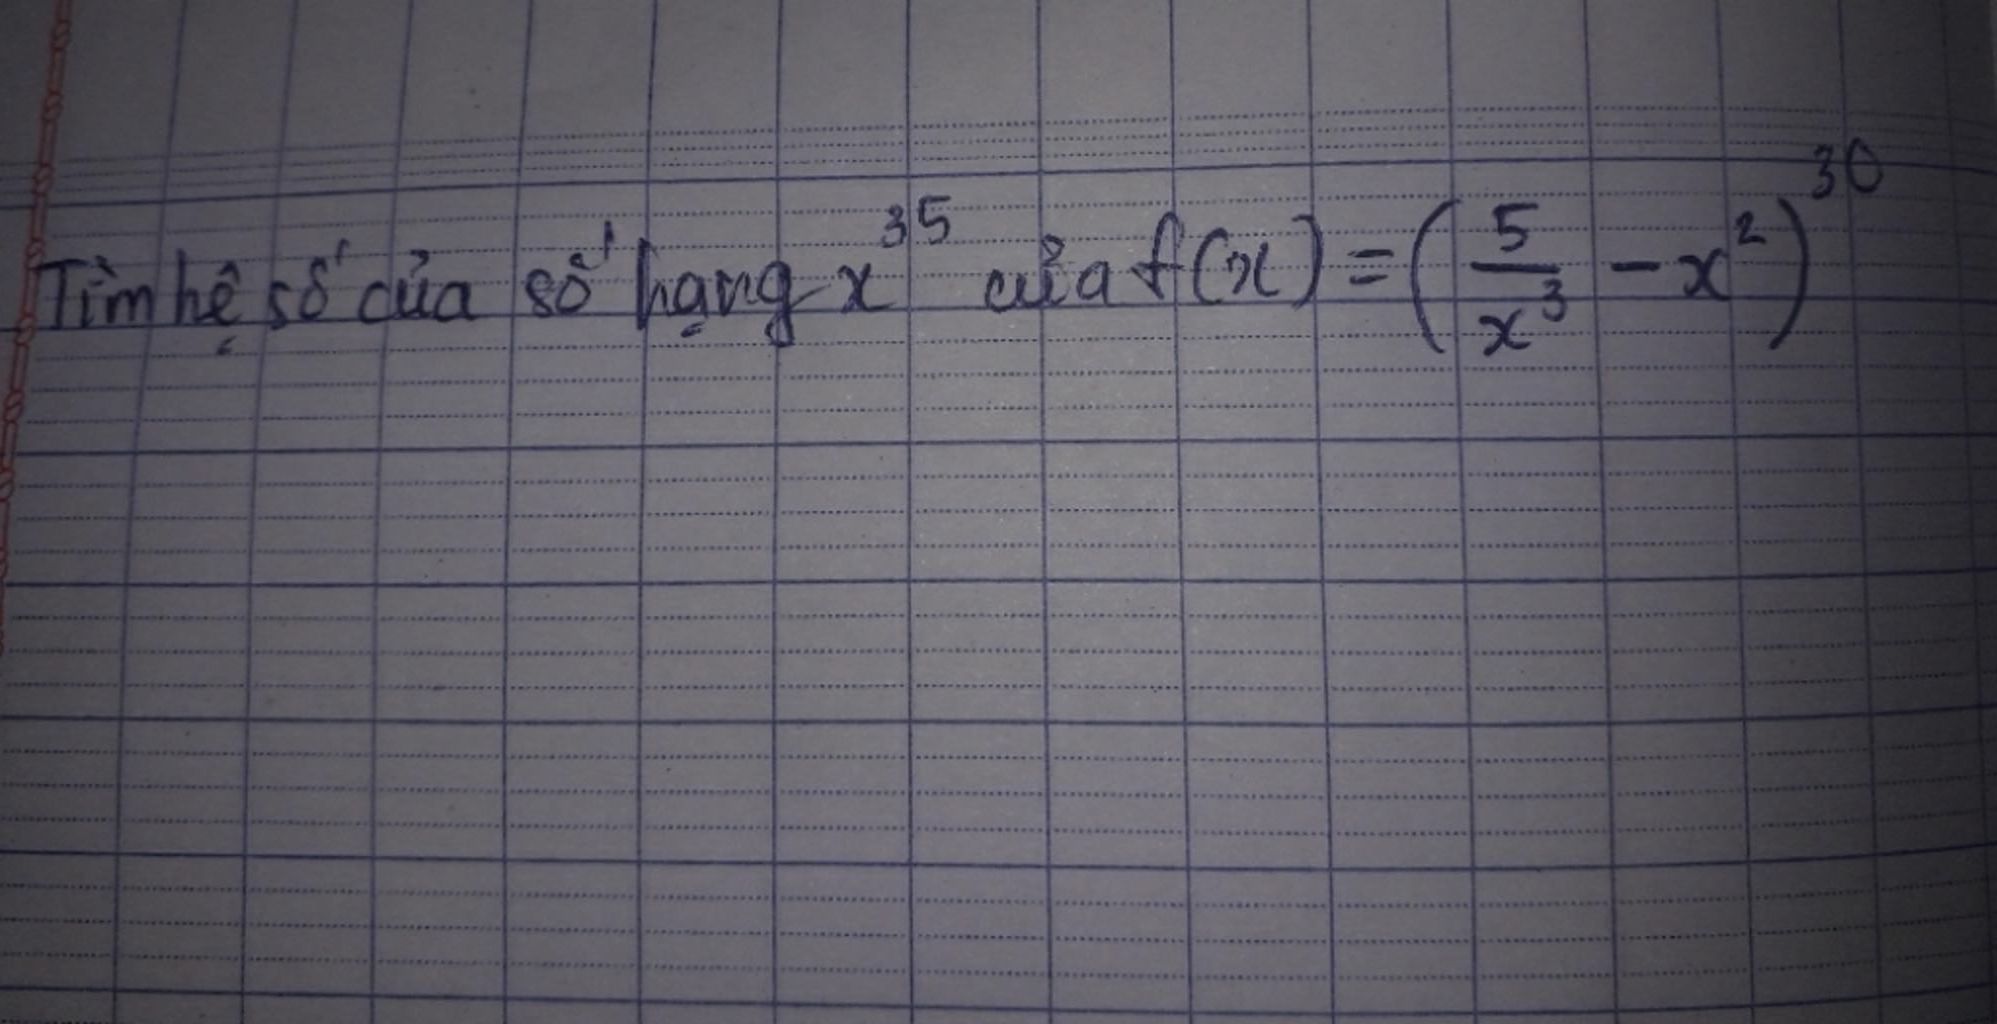 Tìm hệ số của số hạng x^35 của f(x) = (5/x^3 - x^2)^30